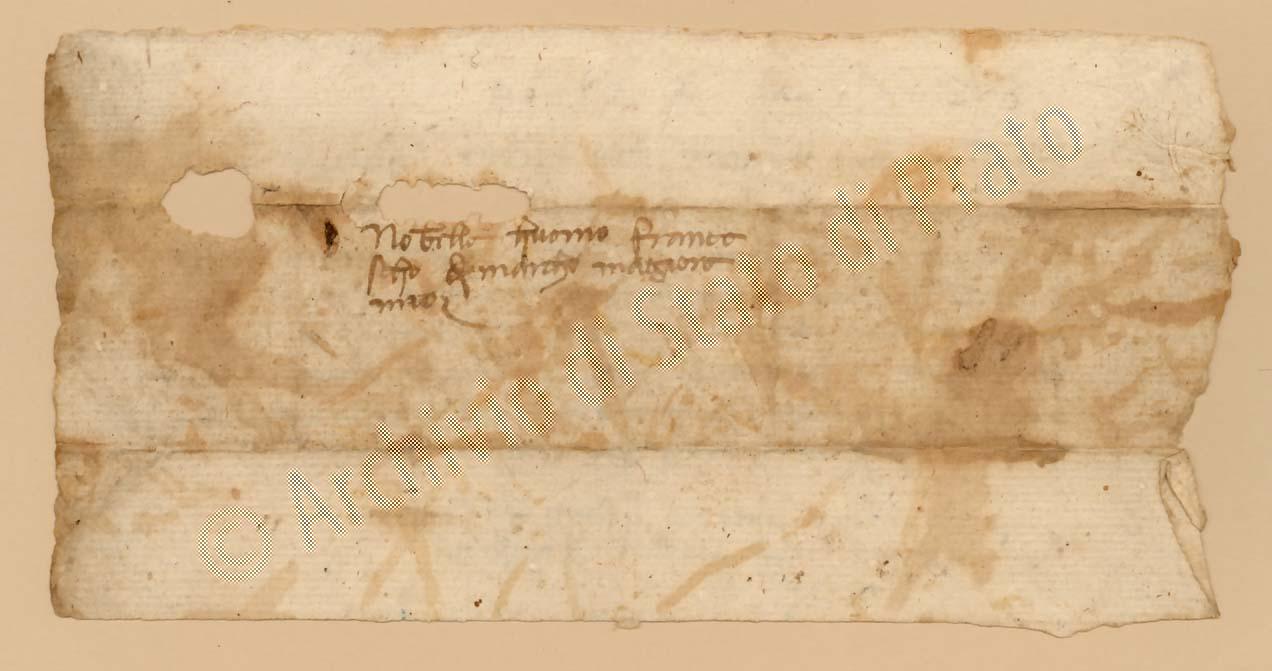 Nobille huomo France
scho di marcho magiore
mio
© Archivio di Stato di Prato